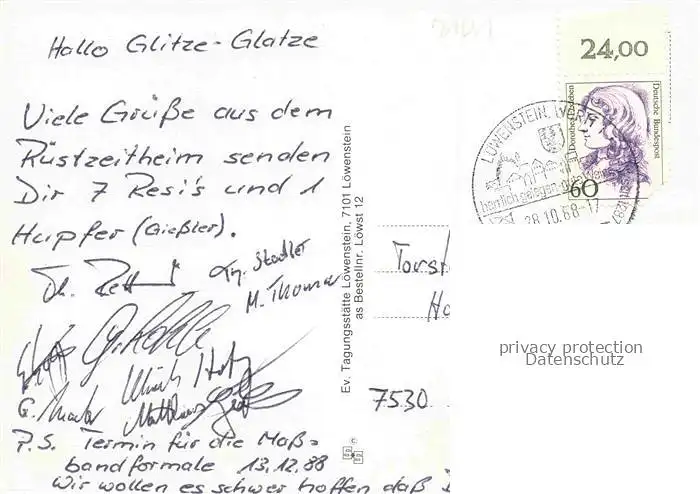 Hallo Glitze-Glatze
Viele Grüße aus dem
Rüstzeitheim senden
Dir 7 Resi's und 1
Hupfer (Gießler).
Stadler
M. Thomas
Ulrich
Matthias
P.S. Termin für die Maß=
bandformale 13.12.88
Wir wollen es schwer hoffen daß
Ev. Tagungsstätte Löwenstein, 7101 Löwenstein
as Bestellnr. Löwst 12
24,00
Deutsche Bundespost
Dorothea Erxleben
60
LÖWENSTEIN, WÜRTT
herrlich gelegen
28.10.88-17
Torst
Ho
7530
privacy protection
Datenschutz